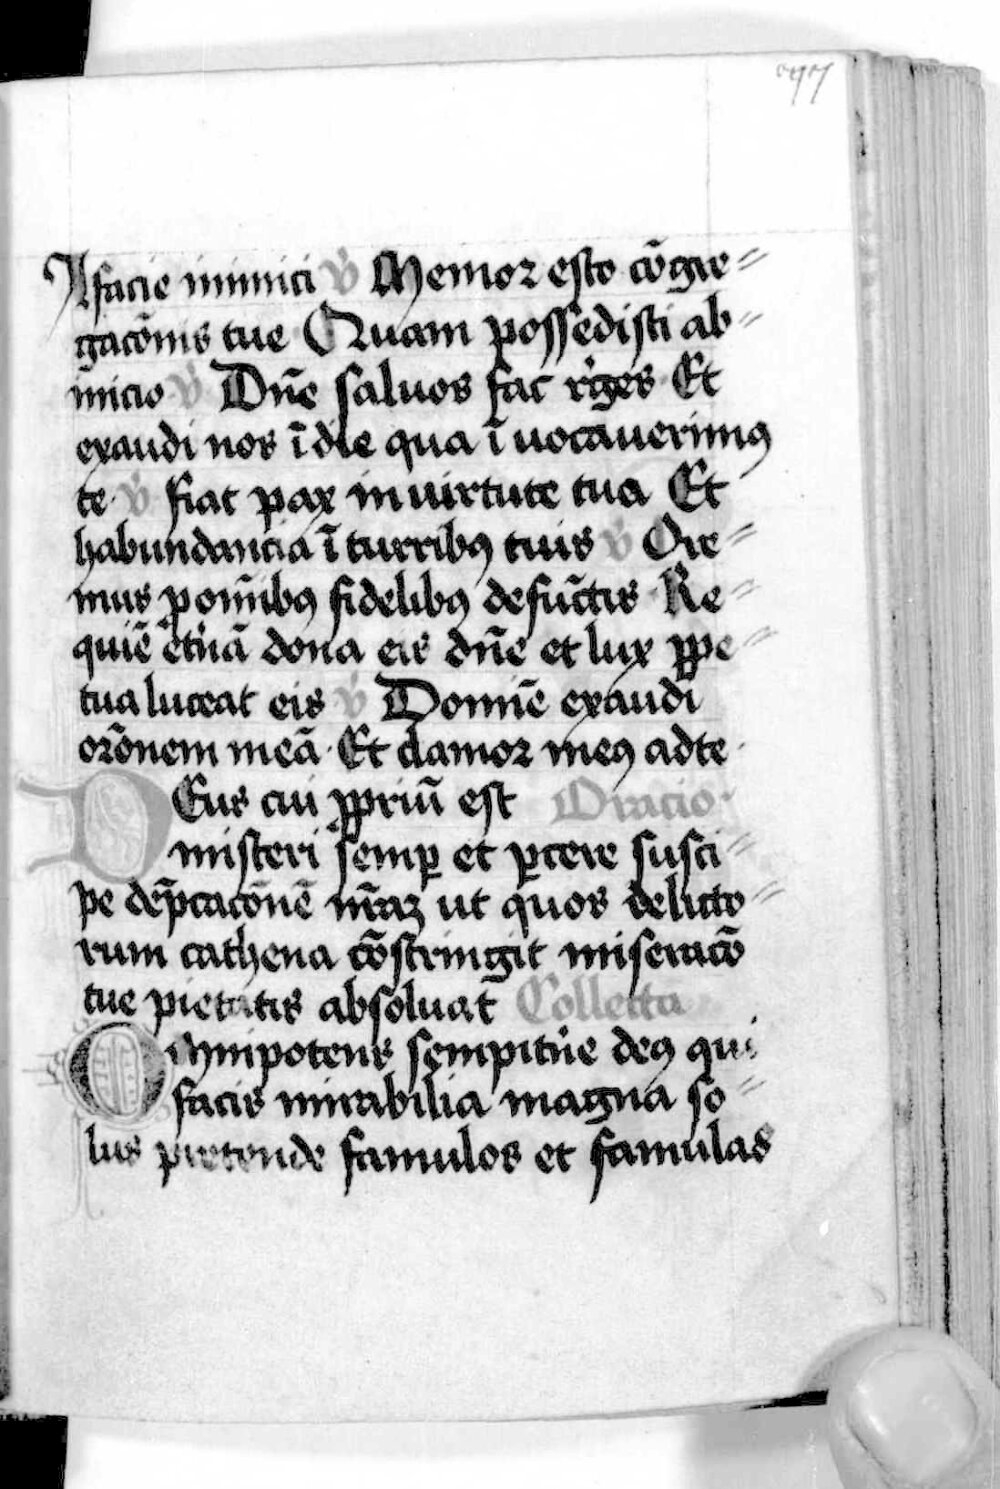 97
A facie inimici v̄ Memor esto cōgre〃
gacōnis tue Quam possedisti ab〃
inicio v̄ Dn̄e saluos fac r̄ges Et
exaudi nos ī die qua īuocauerimꝰ
te v̄ fiat pax in uirtute tua Et
habundancia ī turribꝰ tuis v̄ Ore〃
mus p om̄ibꝰ fidelibꝰ defūctis Re〃
quiē et̄nā dona eis dn̄e et lux ꝑpe〃
tua luceat eis v̄ Domīe exaudi
orōnem meā Et clamor meꝰ ad te
Deus cui ꝓpriū est Oracio
misteri semꝑ et ꝑcere susci〃
pe dep̄cacōnē nr̄aꝫ ut quos delicto〃
rum cathena cōstringit miseracō
tue pietatis absoluat̄ Collecta
Omnipotens sempit̄ne deꝰ qui
facis mirabilia magna so〃
lus pretende famulos et famulas